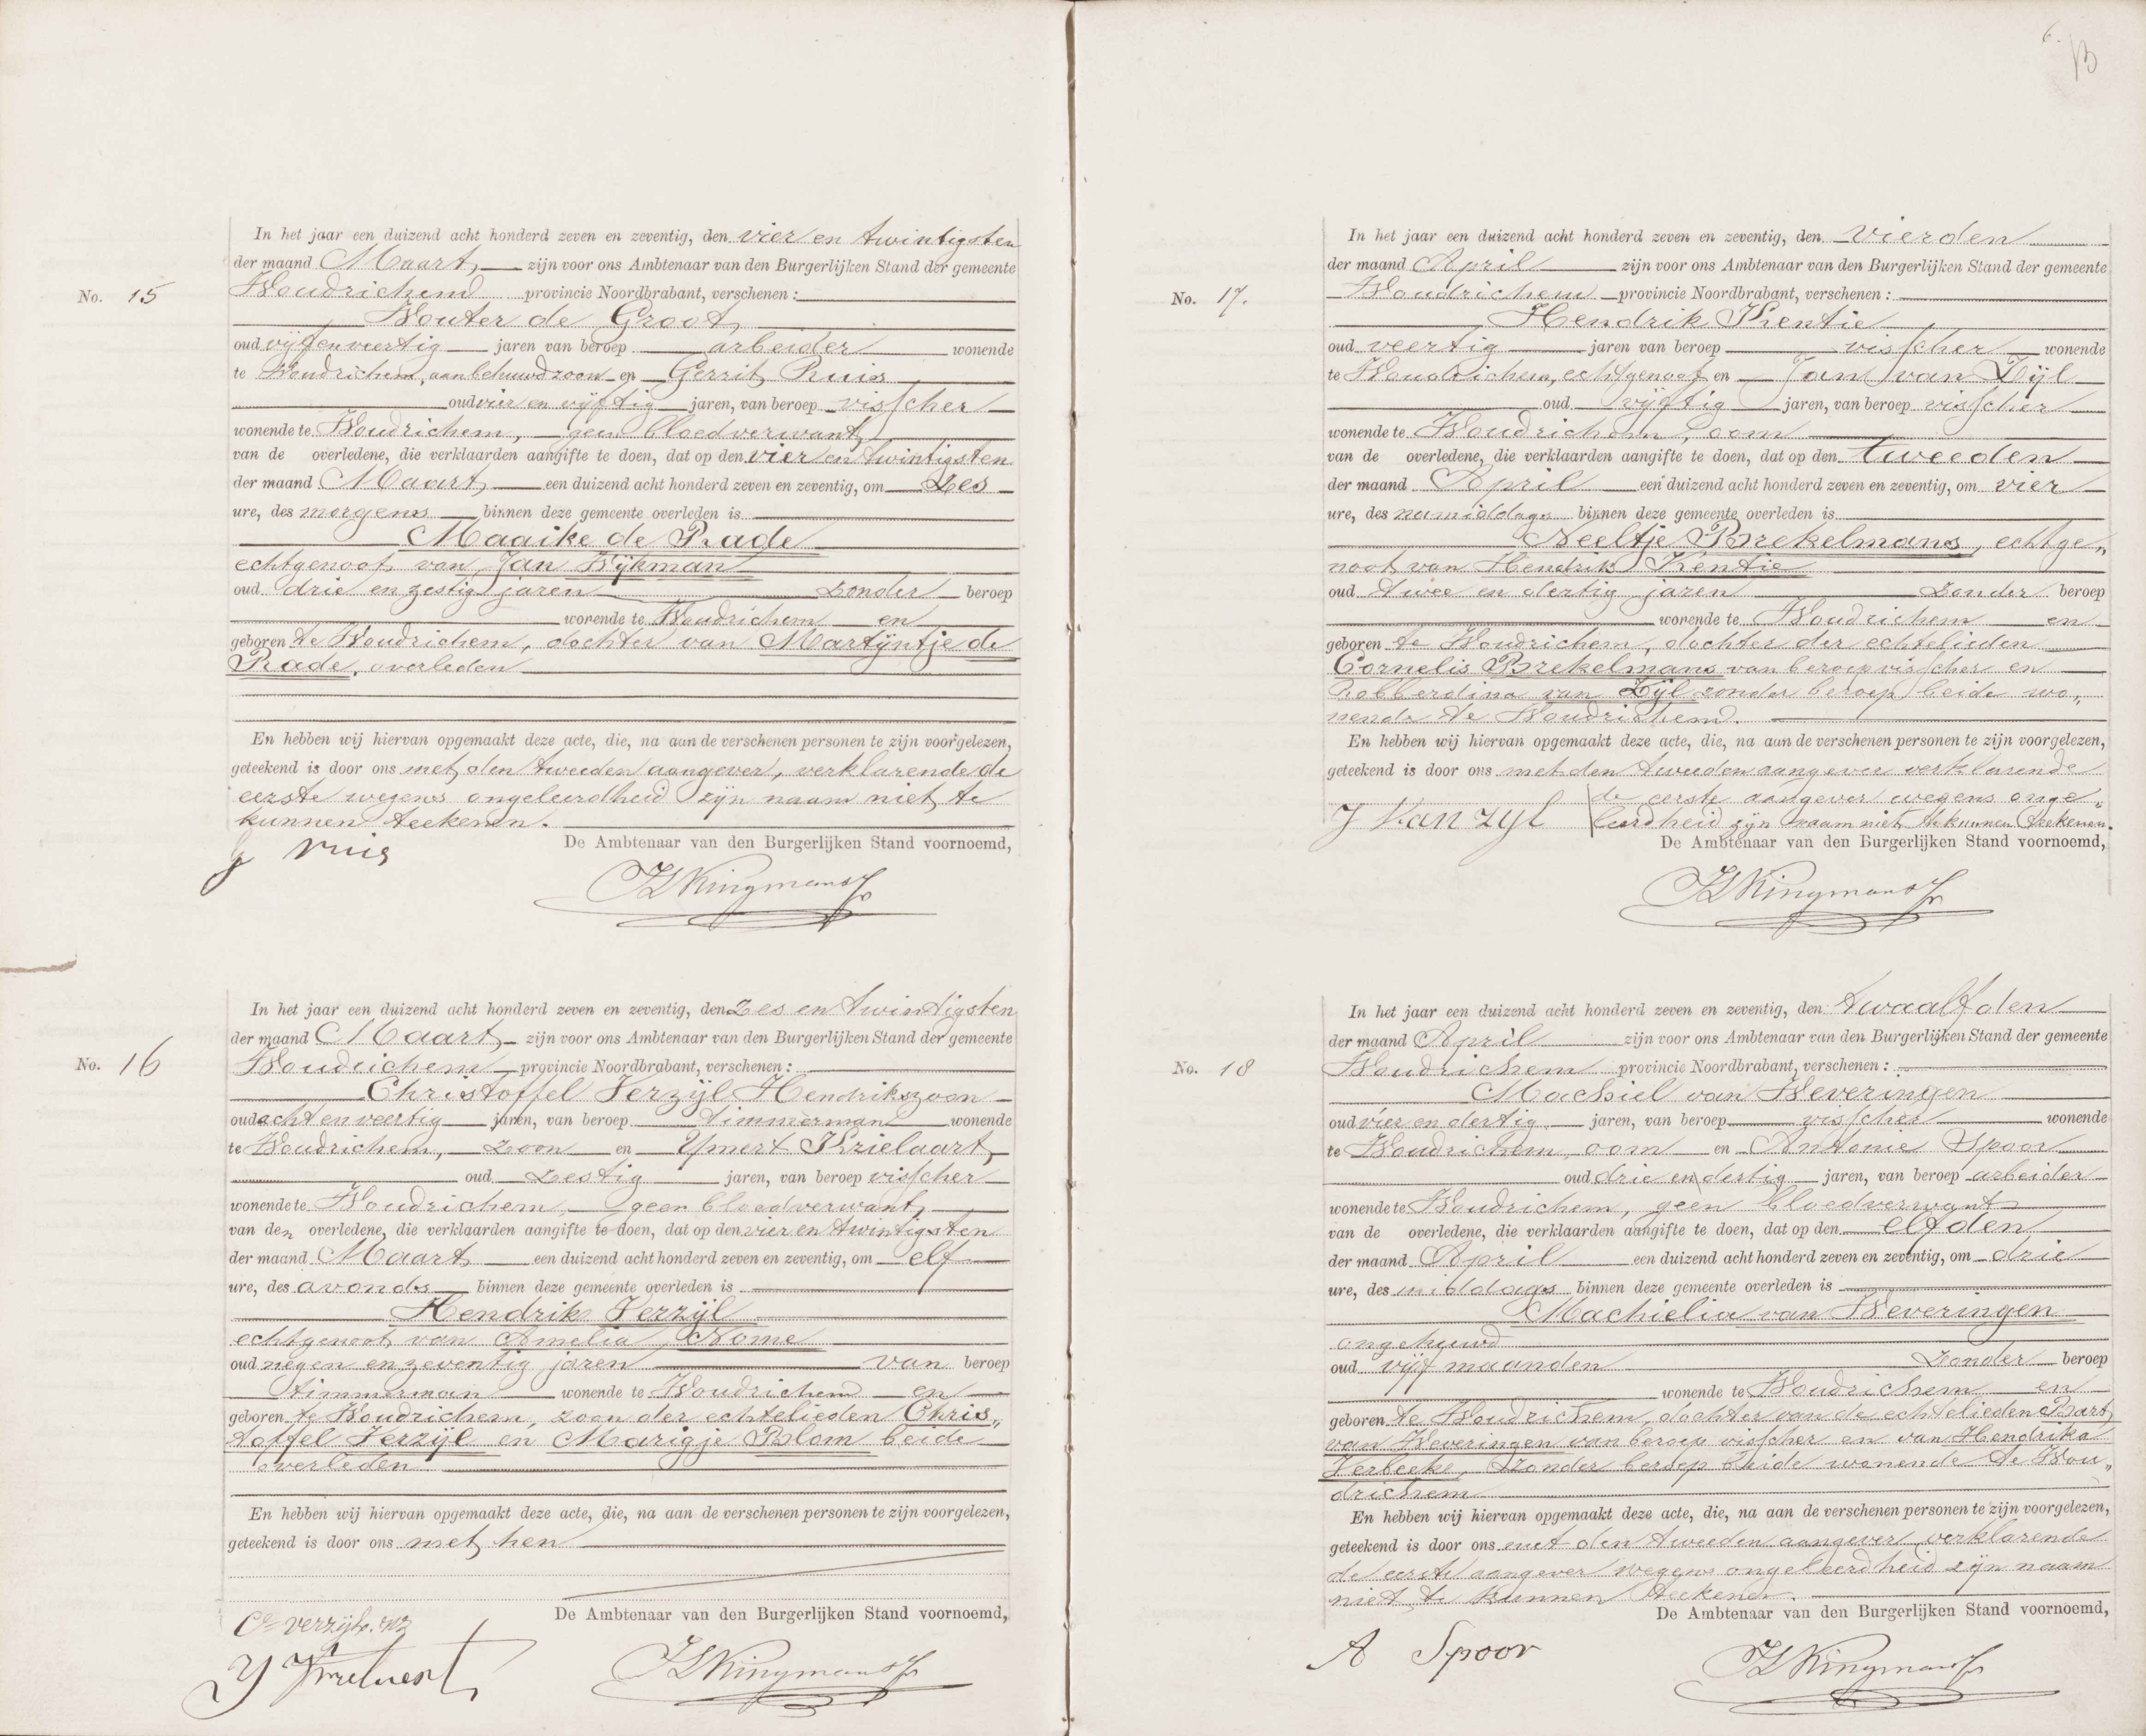 No. 15
In het jaar een duizend acht honderd zeven en zeventig, den vier en twintigsten
der maand Maart, zijn voor ons Ambtenaar van den Burgerlijken Stand der gemeente
Woudrichem provincie Noordbrabant, verschenen:
Wouter de Groot,
oud vijf en veertig jaren van beroep arbeider wonende
te Woudrichem, aanbehuwdzoon en Gerrit Ruis
oud vier en vijftig jaren, van beroep visscher
wonende te Woudrichem, geen bloedverwant,
van de overledene, die verklaarden aangifte te doen, dat op den vier en twintigsten
der maand Maart, een duizend acht honderd zeven en zeventig, om Zes
ure, des morgens binnen deze gemeente overleden is
Maaike de Rade
echtgenoot van Jan Dijkman
oud drie en zestig jaren Zonder beroep
wonende te Woudrichem en
geboren te Woudrichem, dochter van Martijntje de
Rade, overleden
En hebben wij hiervan opgemaakt deze acte, die, na aan de verschenen personen te zijn voorgelezen,
geteekend is door ons met den tweeden aangever, verklarende de
eerste wegens ongeleerdheid zijn naam niet te
kunnen teekenen.
De Ambtenaar van den Burgerlijken Stand voornoemd,
G ruis
No. 16
In het jaar een duizend acht honderd zeven en zeventig, den Zes en twintigsten
der maand Maart, zijn voor ons Ambtenaar van den Burgerlijken Stand der gemeente
Woudrichem provincie Noordbrabant, verschenen:
Christoffel Verzijl Hendrikszoon
oud acht en veertig jaren, van beroep timmerman wonende
te Woudrichem, Zoon en Ijmert Krielaart,
oud Zestig jaren, van beroep visscher
wonende te Woudrichem, geen bloedverwant,
van den overledene, die verklaarden aangifte te doen, dat op den vier en twintigsten
der maand Maart een duizend acht honderd zeven en zeventig, om elf
ure, des avonds binnen deze gemeente overleden is
Hendrik Verzijl
echtgenoot van Amelia Nome
oud negen en zeventig jaren van beroep
timmerman wonende te Woudrichem en
geboren te Woudrichem, zoon der echtelieden Chris„
toffel Verzijl en Marigje Blom beide
overleden
En hebben wij hiervan opgemaakt deze acte, die, na aan de verschenen personen te zijn voorgelezen,
geteekend is door ons met hen
De Ambtenaar van den Burgerlijken Stand voornoemd,
6.
No. 17.
In het jaar een duizend acht honderd zeven en zeventig, den vierden
der maand April zijn voor ons Ambtenaar van den Burgerlijken Stand der gemeente
Woudrichem provincie Noordbrabant, verschenen:
Hendrik Kentie
oud veertig jaren van beroep visscher wonende
te Woudrichem, echtgenoot en Jan van Zijl
oud vijftig jaren, van beroep visscher
wonende te Woudrichem, oom
van de overledene, die verklaarden aangifte te doen, dat op den tweeden
der maand April een duizend acht honderd zeven en zeventig, om vier
ure, des namiddags binnen deze gemeente overleden is
Neeltje Brekelmans, echtge„
noot van Hendrik Kentie
oud twee en dertig jaren Zonder beroep
wonende te Woudrichem en
geboren te Woudrichem, dochter der echtelieden
Cornelis Brekelmans van beroep visscher en
Hobberdina van Zijl zonder beroep beide wo„
nende te Woudrichem.
En hebben wij hiervan opgemaakt deze acte, die, na aan de verschenen personen te zijn voorgelezen,
geteekend is door ons met den tweeden aangever verklarende
de eerste aangever wegens onge„
leerdheid zijn naam niet te kunnen teekenen.
J Van Zyl
De Ambtenaar van den Burgerlijken Stand voornoemd,
No. 18
In het jaar een duizend acht honderd zeven en zeventig, den twaalfden
der maand April zijn voor ons Ambtenaar van den Burgerlijken Stand der gemeente
Woudrichem provincie Noordbrabant, verschenen:
Machiel van Weveringen
oud vier en dertig jaren, van beroep visscher wonende
te Woudrichem, oom en Antonie Spoor
oud drie en dertig jaren, van beroep arbeider
wonende te Woudrichem, geen bloedverwant
van de overledene, die verklaarden aangifte te doen, dat op den elfden
der maand April een duizend acht honderd zeven en zeventig, om drie
ure, des middags binnen deze gemeente overleden is
Machielia van Weveringen
ongehuwd
oud vijf maanden Zonder beroep
wonende te Woudrichem en
geboren te Woudrichem, dochter van de echtelieden Bart
van Weveringen van beroep visscher en van Hendrika
Verbeeke, Zonder beroep beide wonende te Wou„
drichem
En hebben wij hiervan opgemaakt deze acte, die, na aan de verschenen personen te zijn voorgelezen,
geteekend is door ons met den tweeden aangever verklarende
de eerste aangever wegens ongeleerdheid zijn naam
niet te kunnen teekenen.
De Ambtenaar van den Burgerlijken Stand voornoemd,
A Spoor